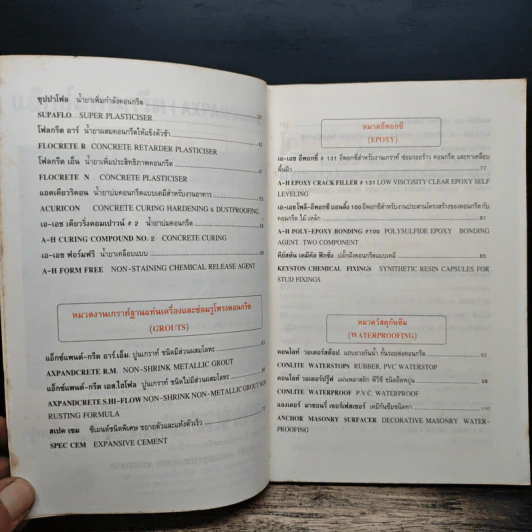 ซุปปาโฟล น้ำยาเพิ่มกำลังคอนกรีต
SUPAFLO SUPER PLASTICISER
โฟลกรีต อาร์ น้ำยาผสมคอนกรีตให้แข็งตัวช้า
FLOCRETE R CONCRETE RETARDER PLASTICISER
โฟลกรีต เอ็น น้ำยาเพิ่มประสิทธิภาพคอนกรีต
FLOCRETE N CONCRETE PLASTICISER
แอคเดียวริคอน น้ำยาบ่มคอนกรีตแบบเคมีสำหรับงานอาคาร
ACURICON CONCRETE CURING HARDENING & DUSTPROOFING
เอ-เอช เคียวริ่งคอมเปาวน์ # 2 น้ำยาบ่มคอนกรีต
A-H CURING COMPOUND NO. 2 CONCRETE CURING
เอ-เอช ฟอร์มฟรี น้ำยาเคลือบแบบ
A-H FORM FREE NON-STAINING CHEMICAL RELEASE AGENT
หมวดงานเกราท์ฐานแท่นเครื่องและซ่อมรูโพรงคอนกรีต
(GROUTS)
แอ็กซ์แพนด์-กรีต อาร์.เอ็ม. ปูนเกราท์ ชนิดมีส่วนผสมโลหะ
AXPANDCRETE R.M. NON-SHRINK METALLIC GROUT
แอ็กซ์แพนด์-กรีต เอสไฮโฟล ปูนเกราท์ ชนิดไม่มีส่วนผสมโลหะ
AXPANDCRETE S.HI-FLOW NON-SHRINK NON-METALLIC GROUT NON
RUSTING FORMULA
สเปค เซม ซีเมนต์ชนิดพิเศษ ขยายตัวและแห้งตัวเร็ว
SPEC CEM EXPANSIVE CEMENT
หมวดอีพอกซี่
(EPOXY)
เอ-เอช อีพ็อกซี่ # 131 อีพ็อกซี่สำหรับงานเกราท์ ซ่อมรอยร้าว คอนกรีต และทาเคลือบ
พื้นผิว 77
A-H EPOXY CRACK FILLER # 131 LOW VISCOSITY CLEAR EPOXY SELF
LEVELING
เอ-เอชโพลี-อีพ็อกซี่ บอนดิ้ง 100 อีพอกซี่สำหรับงานประสานโครงสร้างของคอนกรีต กับ
คอนกรีต ไม้ เหล็ก 81
A-H POLY-EPOXY BONDING #100 POLYSULFIDE EPOXY BONDING
AGENT TWO COMPONENT
คีย์สตัน เคมีคัล ฟิกซิ่ง ปลั๊กฝังคอนกรีตแบบเคมี 85
KEYSTON CHEMICAL FIXINGS SYNTHETIC RESIN CAPSULES FOR
STUD FIXINGS
หมวดวัสดุกันซึม
(WATERPROOFING)
คอนไลท์ วอเตอร์สต๊อป แถบยางกันน้ำ กั้นรอยต่อคอนกรีต 92
CONLITE WATERSTOPS RUBBER, PVC WATERSTOP
คอนไลท์ วอเตอร์ปรู๊ฟ แผ่นพลาสติก พีวีซี ชนิดยืดหยุ่น 98
CONLITE WATERPROOF P.V.C. WATERPROOF
แองเคอร์ มาซอนรี่ เซอร์เฟสเซอร์ เคมีกันซึมชนิดทา
ANCHOR MASONRY SURFACER DECORATIVE MASONRY WATER-
PROOFING